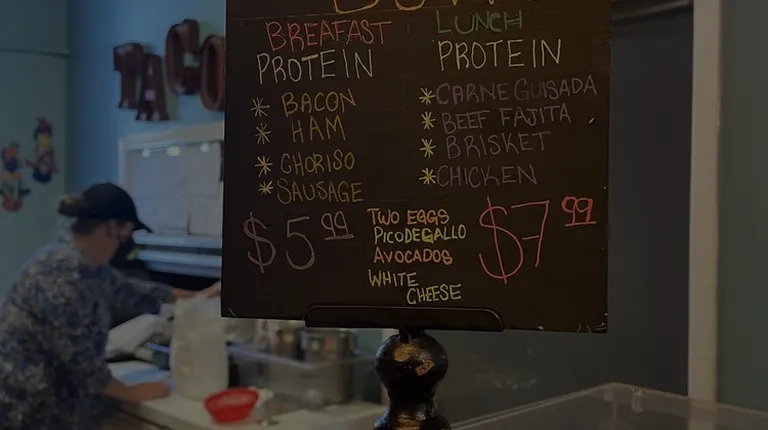 TACO
BREAFAST
PROTEIN
* BACON
* HAM
* CHORISO
* SAUSAGE
$5.99
LUNCH
PROTEIN
* CARNE GUISADA
* BEEF FAJITA
* BRISKET
* CHICKEN
$7.99
TWO EGGS
PICODEGALLO
AVOCADOS
WHITE
CHEESE